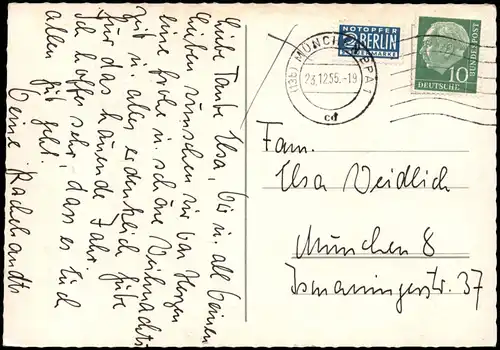 Liebe Tante Elsa, dir u. all deinen
Lieben wünschen wir von Herzen
eine frohe u. schöne Weihnachts
zeit u. alles erdenklich Gute
für das kommende Jahr.
Ich hoffe sehr, dass es Euch
allen gut geht.
Deine
NOTOPFER
2 BERLIN
STEUERMARKE
MÜNCHEN BPA 1
(13b)
23.12.55.-19
cd
10
DEUTSCHE
BUNDESPOST
Fam.
Elsa Veidlich
München 8
Ismaningerstr. 37